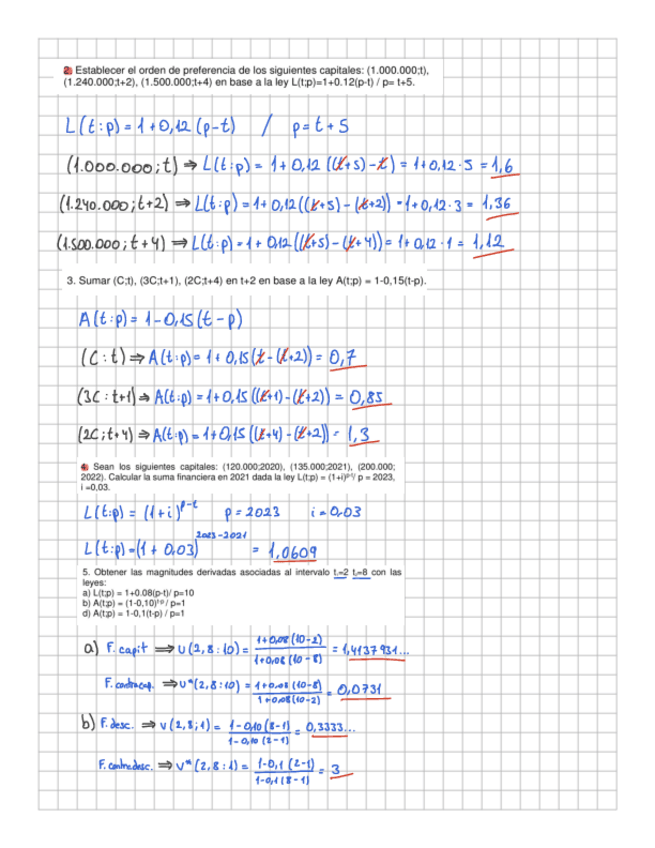 2. Establecer el orden de preferencia de los siguientes capitales: (1.000.000;t),
(1.240.000;t+2), (1.500.000;t+4) en base a la ley L(t;p)=1+0.12(p-t) / p= t+5.
L(t:p) = 1+0,12 (p-t) / p= t+5
(1.000.000;t) ⇒ L(t:p) = 1+0,12 ((t+5)-t) = 1+0,12·5 = 1,6
(1.240.000;t+2) ⇒ L(t:p) = 1+0,12((t+5)-(t+2)) = 1+0,12·3 = 1,36
(1.500.000;t+4) ⇒ L(t:p) = 1+0,12((t+5)-(t+4)) = 1+0,12·1 = 1,12
3. Sumar (C;t), (3C;t+1), (2C;t+4) en t+2 en base a la ley A(t;p) = 1-0,15(t-p).
A(t:p) = 1-0,15(t-p)
(C:t) ⇒ A(t:p) = 1+0,15(t-(t+2)) = 0,7
(3C:t+1) ⇒ A(t:p) = 1+0,15((t+1)-(t+2)) = 0,85
(2C;t+4) ⇒ A(t:p) = 1+0,15((t+4)-(t+2)) = 1,3
4. Sean los siguientes capitales: (120.000;2020), (135.000;2021), (200.000;
2022). Calcular la suma financiera en 2021 dada la ley L(t;p) = (1+i)^p-t/ p = 2023,
i =0,03.
L(t:p) = (1+i)^p-t p=2023 i=0,03
L(t:p) = (1+0,03)^2023-2021 = 1,0609
5. Obtener las magnitudes derivadas asociadas al intervalo t1=2 t2=8 con las
leyes:
a) L(t;p) = 1+0.08(p-t)/ p=10
b) A(t;p) = (1-0,10)^t-p / p=1
d) A(t;p) = 1-0,1(t-p) / p=1
a) F. capit ⇒ U(2,8:10) = 1+0,08(10-2) / 1+0,08(10-8) = 1,4137931...
F. contracap. ⇒ U*(2,8:10) = 1+0,08(10-8) / 1+0,08(10-2) = 0,0731
b) F. desc. ⇒ V(2,8;1) = 1-0,10(8-1) / 1-0,10(2-1) = 0,3333...
F. contradesc. ⇒ V*(2,8:1) = 1-0,1(2-1) / 1-0,1(8-1) = 3